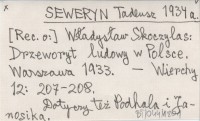 x
SEWERYN Tadeusz 1934 a.
[Rec. o:] Władysław Skoczylas:
Drzeworyt ludowy w Polsce.
Warszawa 1933. — Wierchy
12: 207-208.
Dotyczy też Podhala i Ja-
nosika.